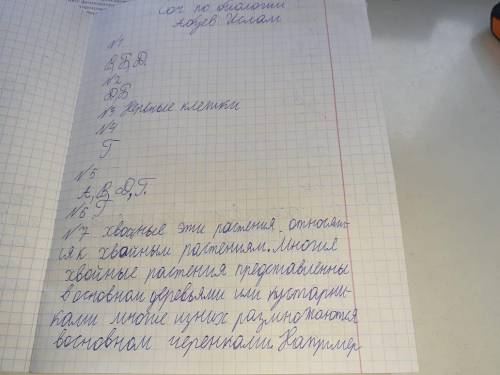 Соч по биологии
Ауев Ислам
№1
В, Б, Д.
№2
Д, В
№3 Нервные клетки
№4
Г
№5
А, В, Д, Г.
№6 Г
№7 хвойные эти растения относят-
ся к хвойным растениям. Многие
хвойные растения представленны
восновном деревьями или кустарни-
ками многие изних размножаются
восновном черенками. Например